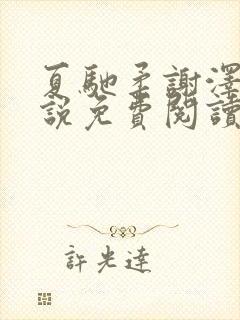 夏馳柔謝澤
說免費閱讀
許光達